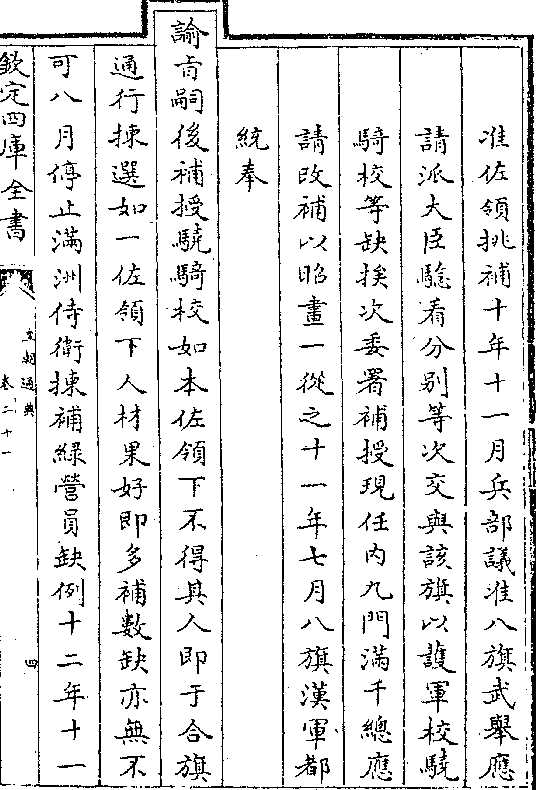 准佐領挑補十年十一月兵部議准八旗武舉應
請派大臣驗看分别等次交與該旗以護軍校驍
騎校等缺挨次委署補授現任内九門滿千總應
請改補以昭畫一從之十一年七月八旗漢軍都
統奉
諭旨嗣後補授驍騎校如本佐領下不得其人即于合旗
通行揀選如一佐領下人材果好即多補數缺亦無不
可八月停止滿洲侍衛揀補綠營員缺例十二年十一
欽定四庫全書
皇朝通典
卷二十一
四